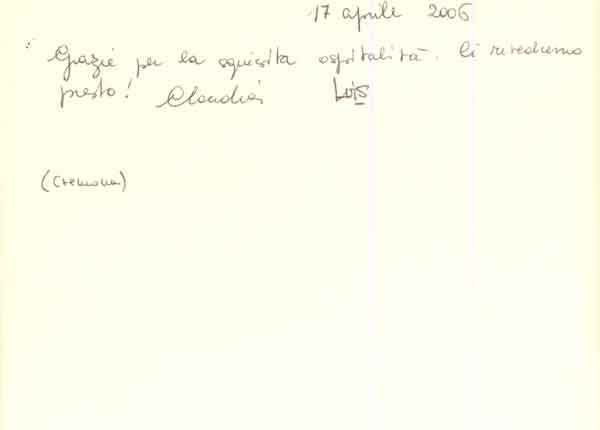 17 aprile 2006
Grazie per la squisita ospitalità. Ci rivedremo
presto! Claudia Luis
(Cremona)